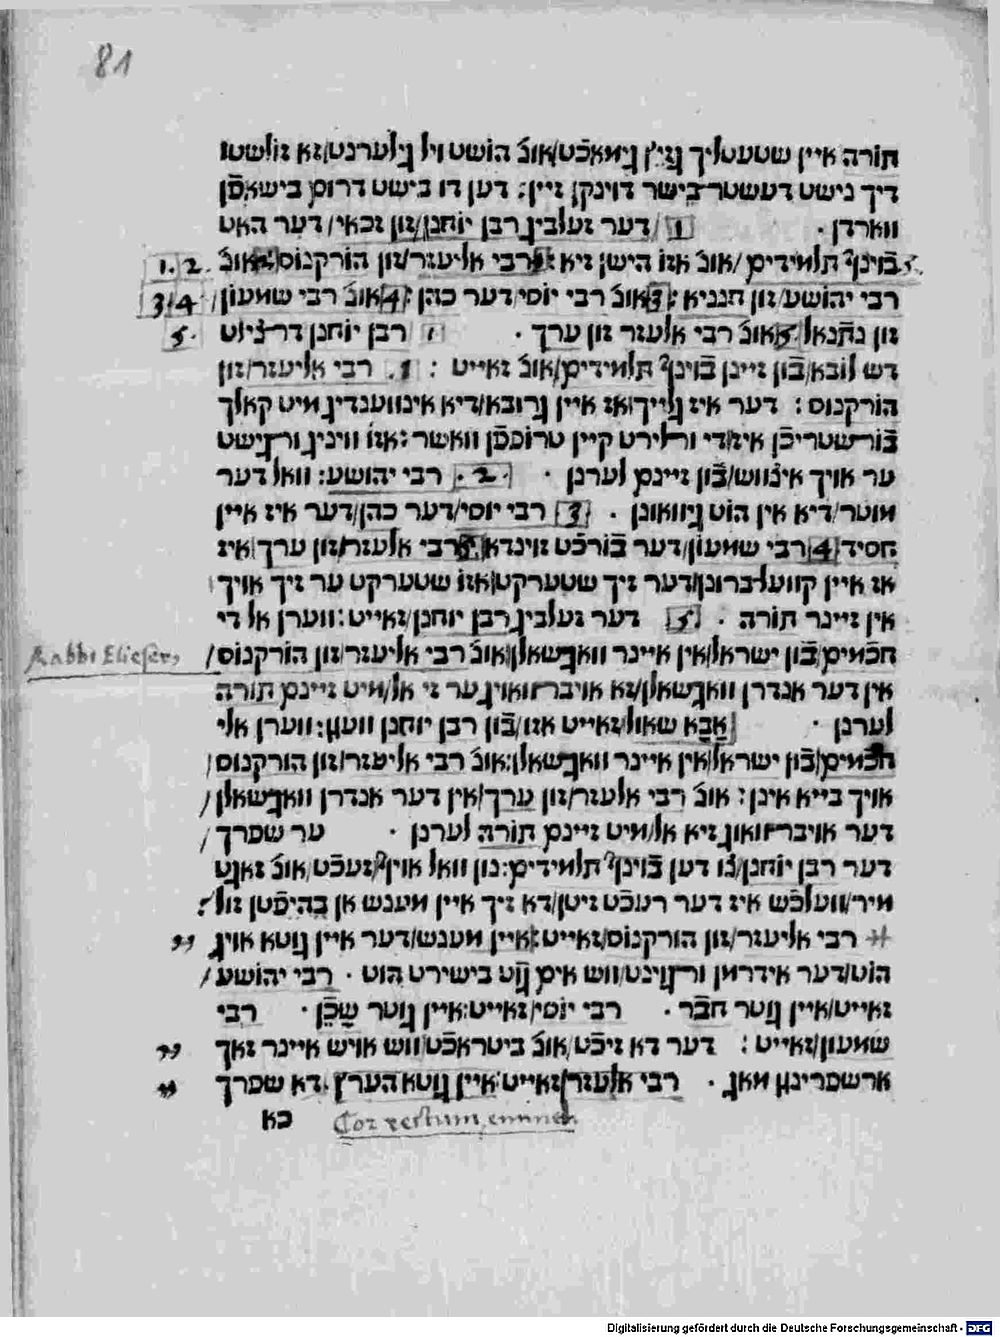 81
תורה איין שטעטליך גמאכט/אונ הושט ויל גילערנט/זא זולשטו
דיך נישט דעשטר בישר דוינקן זיין: דען דו בישט דרום בישאפן
ווארדן · 1 /דער זעלביג רבן יוחנן/זון זכאי/דער האט
1. 2. בוינף תלמידים/אונ אזו הישן זיא: רבי אליעזר/זון הורקנוס אונ
3/4 / רבי יהושע/זון חנניא: 3 אונ רבי יוסי/דער כהן/ 4 אונ רבי שמעון
5. זון נתנאל 5 אונ רבי אלעזר זון ערך · רבן יוחנן דרצילט
דש לובא/בון זיינן בוינף תלמידים/אונ זאייט : 1. רבי אליעזר/זון
הורקנוס: דער איז גלייך/אז איין גרובא/דיא אינווענדיג מיט קאלך
בורשטריכן איז/די ורלירט קיין טרופפן וואשר: אזו ווייניג ורגישט
ער אויך אינווש/בון זיינם לערנן · 2. רבי יהושע: וואל דער
מוטר/דיא אין הוט גיוואונן . 3 רבי יוסי/דער כהן/דער איז איין
חסיד 4 רבי שמעון/דער בורכט זוינדא 5 רבי אלעזר/זון ערך/איז
אז איין קוועלברונן/דער זיך שטערקט/אזו שטערקט ער זיך אויך
אין זיינר תורה · 5 דער זעלביג רבן יוחנן/זאייט: ווערן אל די
Rabbi Elieser, חכמים/בון ישראל/אין איינר וואגשאלן/אונ רבי אליעזר/זון הורקנוס/
אין דער אנדרן וואגשאלן/זא אויבר וואויג ער זי אל/מיט זיינם תורה
לערנן · אבא שאול/זאייט אזו/בון רבן יוחנן וועגן: ווערן אלי
חכמים/בון ישראל/אין איינר וואגשאלן: אונ רבי אליעזר/זון הורקנוס/
אויך בייא אינן: אונ רבי אלעזר/זון ערך/אין דער אנדרן וואגשאלן/
דער אויבר וואוג זיא אל/מיט זיינם תורה לערנן · ער שפרך/
דער רבן יוחנן/צו דען בוינף תלמידים: נון וואל אויף/זעכט אונ זאגט
מיר/וועלכש איז דער רעכט זיטן/דא זיך איין מענש אן בהיפטן זול:
רבי אליעזר/זון הורקנוס/זאייט: איין מענש/דער איין גוטא אויג
הוט/דער אידרמן ורגוינט/ווש אים גוט בישירט הוט · רבי יהושע/
זאייט/איין גוטר חבר · רבי יוסי/זאייט: איין גוטר שכן · רבי
שמעון/זאייט: דער דא זיכט/אונ ביטראכט/ווש אויש איינר זאך
ארשפרינגן מאג · רבי אלעזר/זאייט: איין גוטא הערץ. דא שפרך
כא Cor rectum